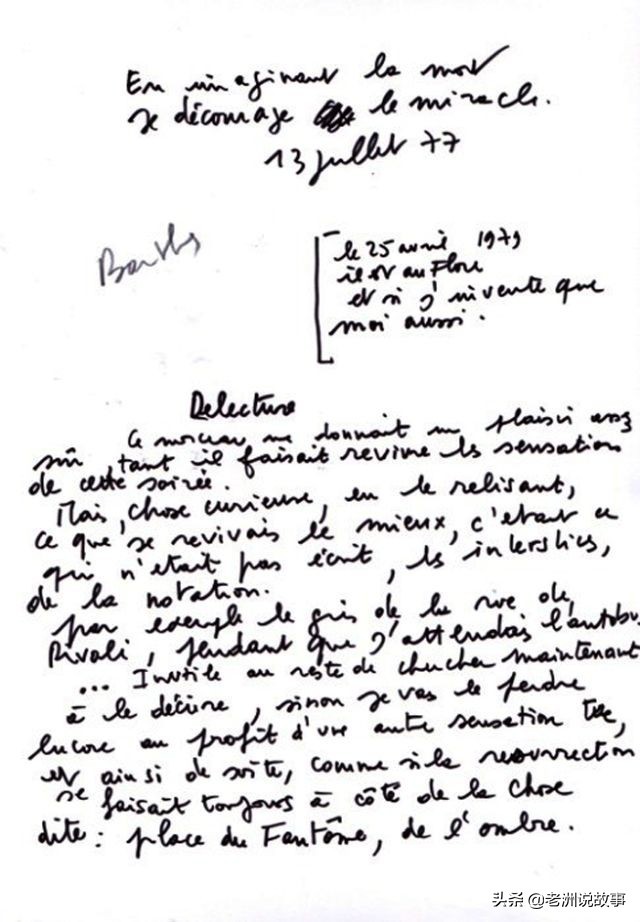 En imaginant la mort
je décourage le miracle.
13 juillet 77
Barthes
le 25 avril 1979
il est au Flore
et si j'invente que
moi aussi.
Relecture
Ce morceau me donnait un plaisir assez
sûr, tant il faisait revivre les sensations
de cette soirée.
Mais, chose curieuse, en le relisant,
ce que je revivais le mieux, c'était ce
qui n'était pas écrit, les interstices,
de la notation.
par exemple le gris de la rue de
Rivoli, pendant que j'attendais l'autobus
... Inutile au reste de chercher maintenant
à le décrire, sinon je vas le perdre
encore au profit d'une autre sensation tue,
et ainsi de suite, comme si la resurrection
se faisait toujours à côté de la chose
dite : place du Fantôme, de l'ombre.
头条 @老洲说故事